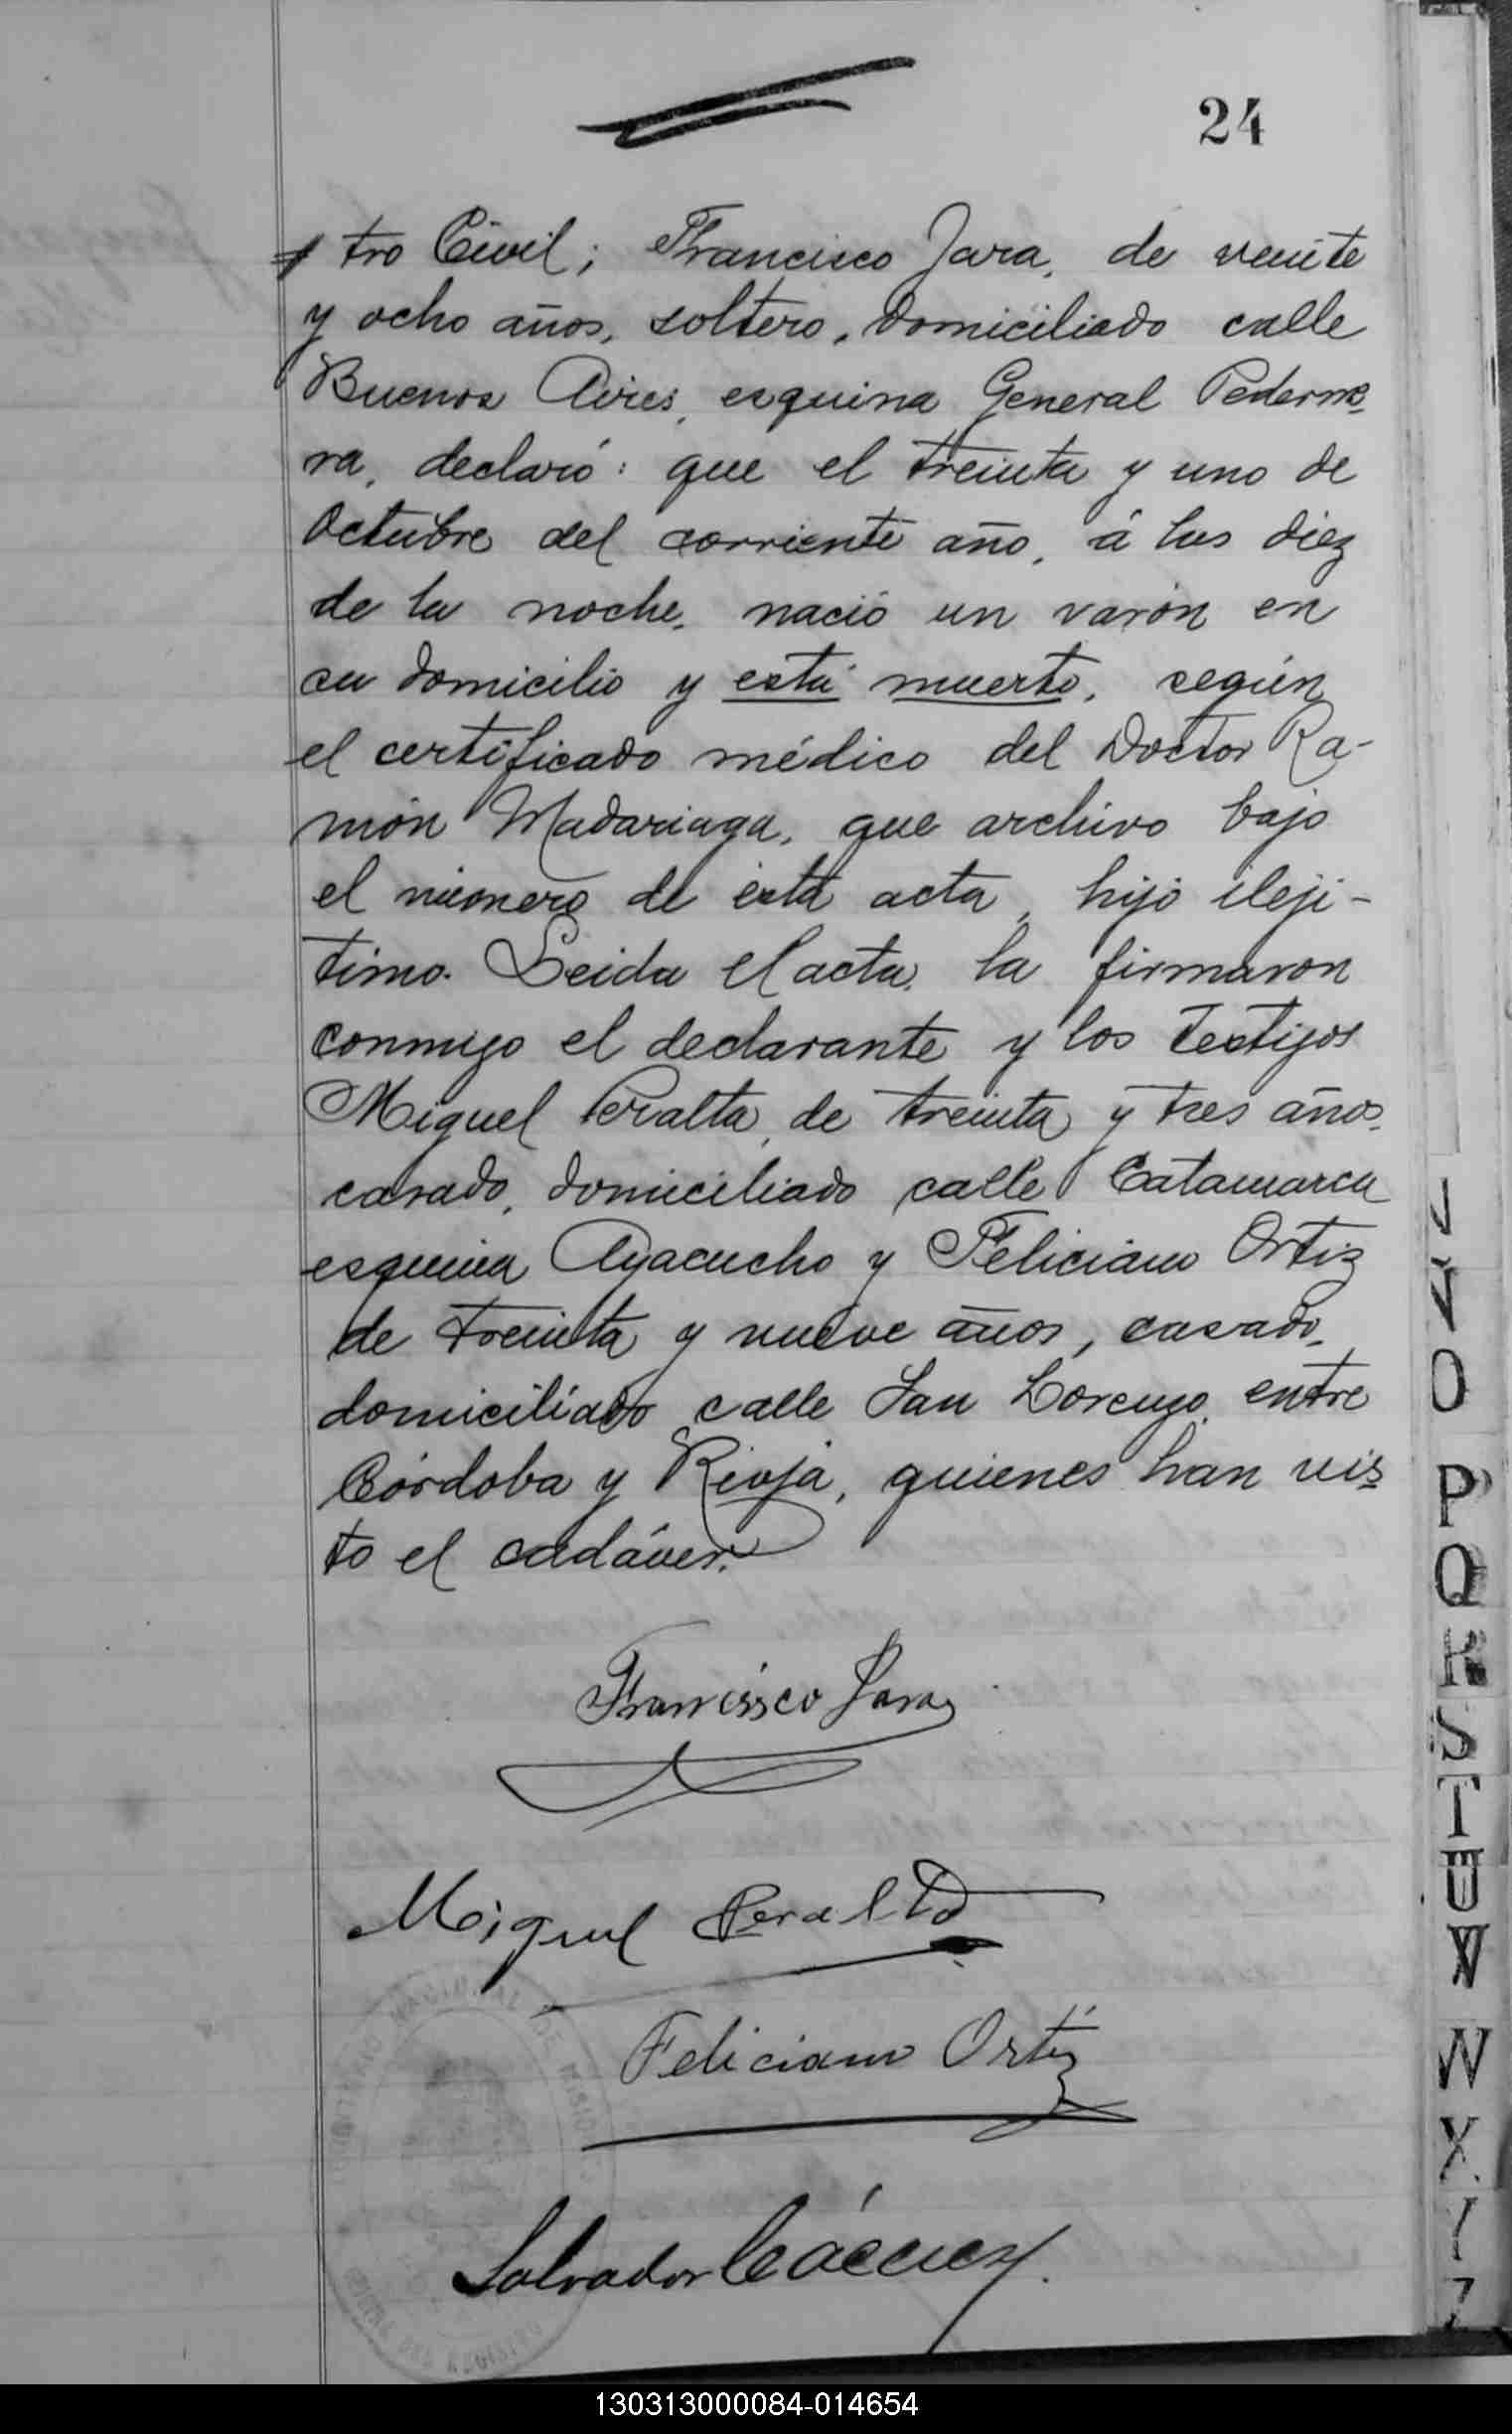 24
tro Civil; Francisco Jara, de veinte
y ocho años, soltero, domiciliado calle
Buenos Aires, esquina General Pederne-
ra, declaró: que el treinta y uno de
Octubre del corriente año, á las diez
de la noche, nació un varón en
su domicilio y está muerto, según
el certificado médico del Doctor Ra-
món Madariaga, que archivo bajo
el número de esta acta, hijo ileji-
timo. Leida el acta, la firmaron
conmigo el declarante y los testigos
Miguel Peralta, de treinta y tres años,
casado, domiciliado calle Catamarca
esquina Ayacucho y Feliciano Ortiz
de treinta y nueve años, casado,
domiciliado calle San Lorenzo, entre
Córdoba y Rioja, quienes han vis-
to el cadáver.
Francisco Jara
Miguel Peralta
Feliciano Ortiz
Salvador Cáceres
O
P
Q
R
S
T
U
V
W
X
Y
Z
130313000084-014654